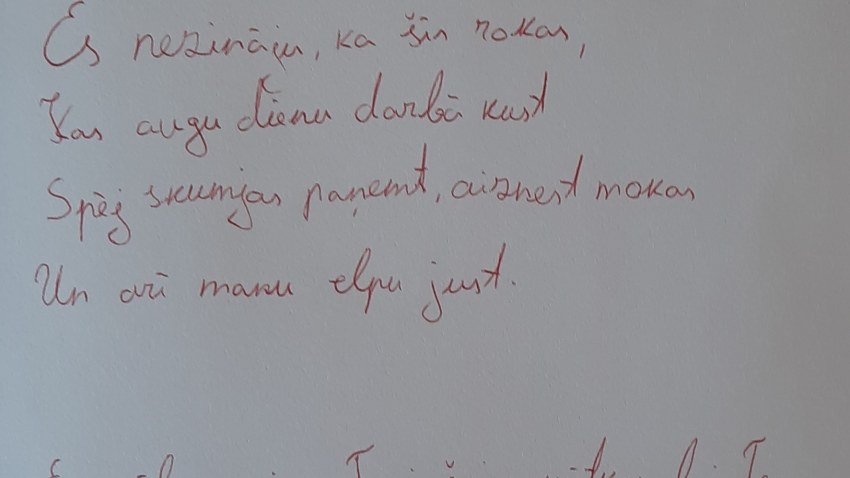 Es nezināju, ka šīs rokas,
Kas augu dienu darbā kust
Spēj skumjas paņemt, aiznest mokas
Un arī manu elpu just.